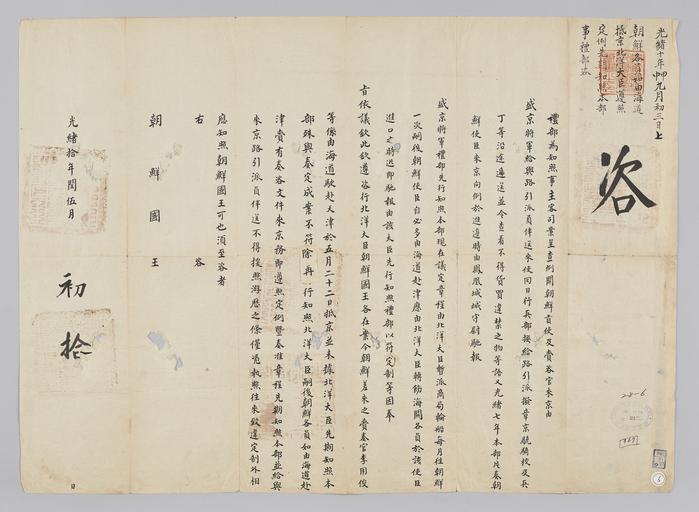 光緒十年甲申九月初三日上
朝鮮各
咨由海道
抵京北洋大臣遵照
定例先
知本部
事禮部咨
咨
禮部為知照事主客司案呈查例開朝鮮貢使及賫咨官來京由
盛京將軍給與路引派員伴送來使回日行兵部換給路引派撥章京驍騎校及兵
丁等沿途遞送並令查看不得貨買違禁之物等語又光緒七年本部片奏朝
鮮使臣來京向例於進邊時由鳳凰城城守尉馳報
盛京將軍禮部先行知照本部現在議定章程由北洋大臣暫派商局輪船每月往朝鮮
一次嗣後朝鮮使臣自必多由海道赴津應由北洋大臣轉飭海關各員於該使臣
進口之時迅即馳報由該大臣先行知照禮部以符定制等因奉
旨依議欽此欽遵咨行北洋大臣朝鮮國王各在案今朝鮮差來之賫奏官李用俊
等係由海道馳赴天津於五月二十二日抵京並未據北洋大臣先期知照本
部殊與奏定成案不符除再行知照北洋大臣嗣後朝鮮各員如由海道赴
津賫有奏咨文件來京務即遵照定例暨奏准章程先期知照本部並給與
來京路引派員伴送不得援照游歷之條僅憑執照往來致違定制外相
應知照朝鮮國王可也須至咨者
右咨
朝鮮國王
光緒拾年閏伍月
初拾
日
28-6